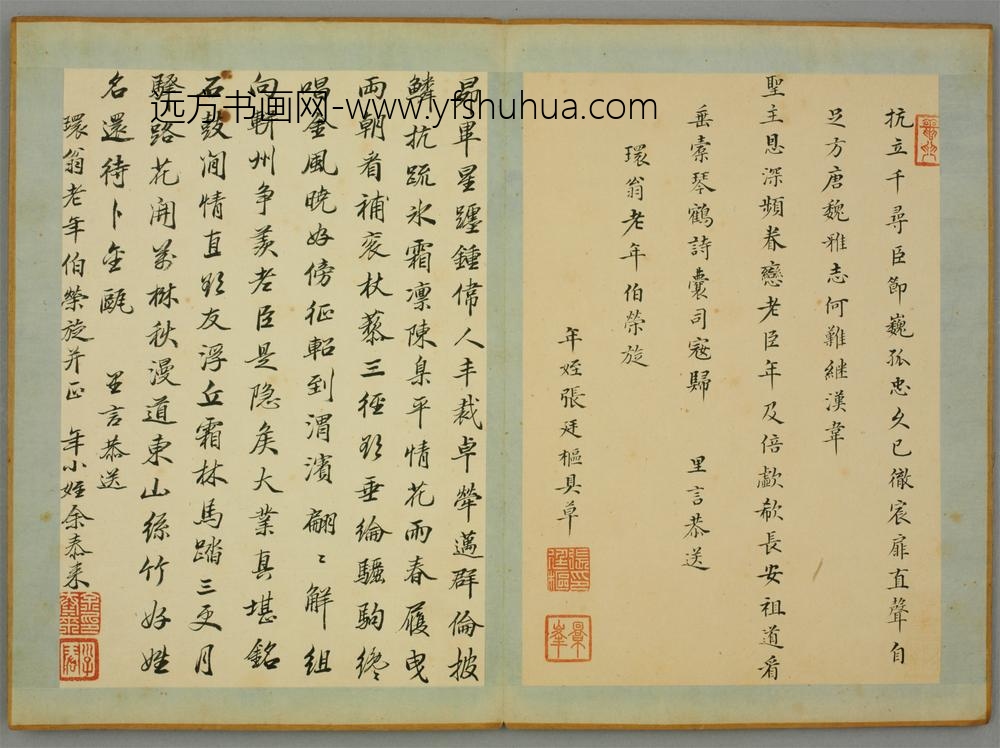 抗立千尋臣節巍孤忠久已徹宸扉直聲自
足方唐魏雅志何難繼漢韋
聖主恩深頻眷戀老臣年及倍歔欷長安祖道看
垂橐琴鶴詩囊司寇歸 里言恭送
環翁老年伯榮旋
年姪張廷樞具草
張廷樞印
景峯
昴畢星躔鍾偉人丰裁卓犖邁群倫披
鱗抗疏氷霜凛陳臬平情花雨春履曳
兩朝看補衮杖藜三徑欣垂綸驪駒終
唱金風曉好傍征軺到渭濱 翩〻解組
向蘄州争羡老臣是隐矦大業真堪銘
石鼓澗情直欲友浮丘霜林馬踏三更月
驛路花開萬樹秋漫道東山絲竹好姓
名還待卜金甌 里言恭送
環翁老年伯榮旋并正 年小姪余泰来
远方书画网-www.yfshuhua.com